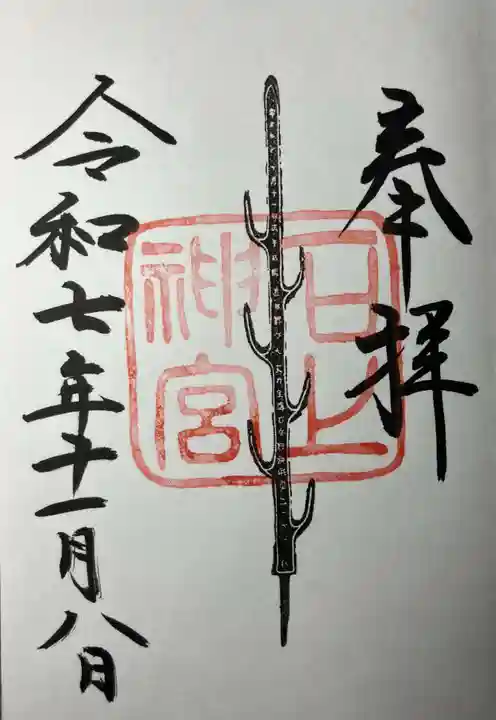 奉拝
石上
神宮
令和七年十一月八日